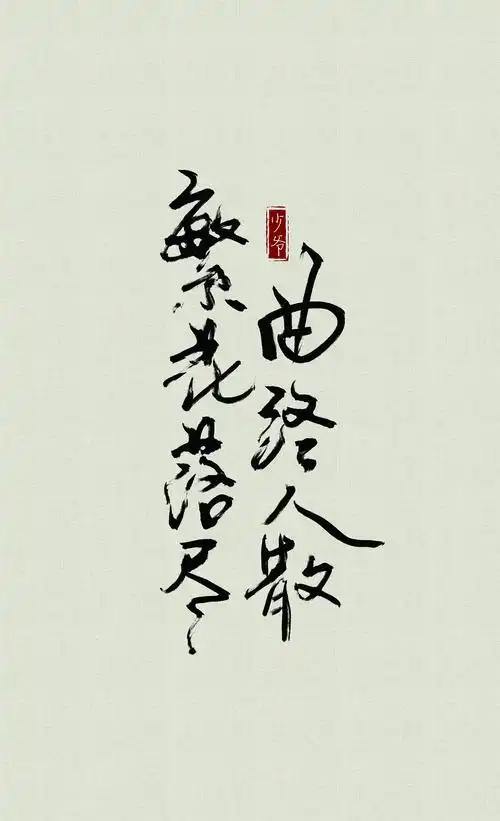 曲终人散
繁花落尽
少爷